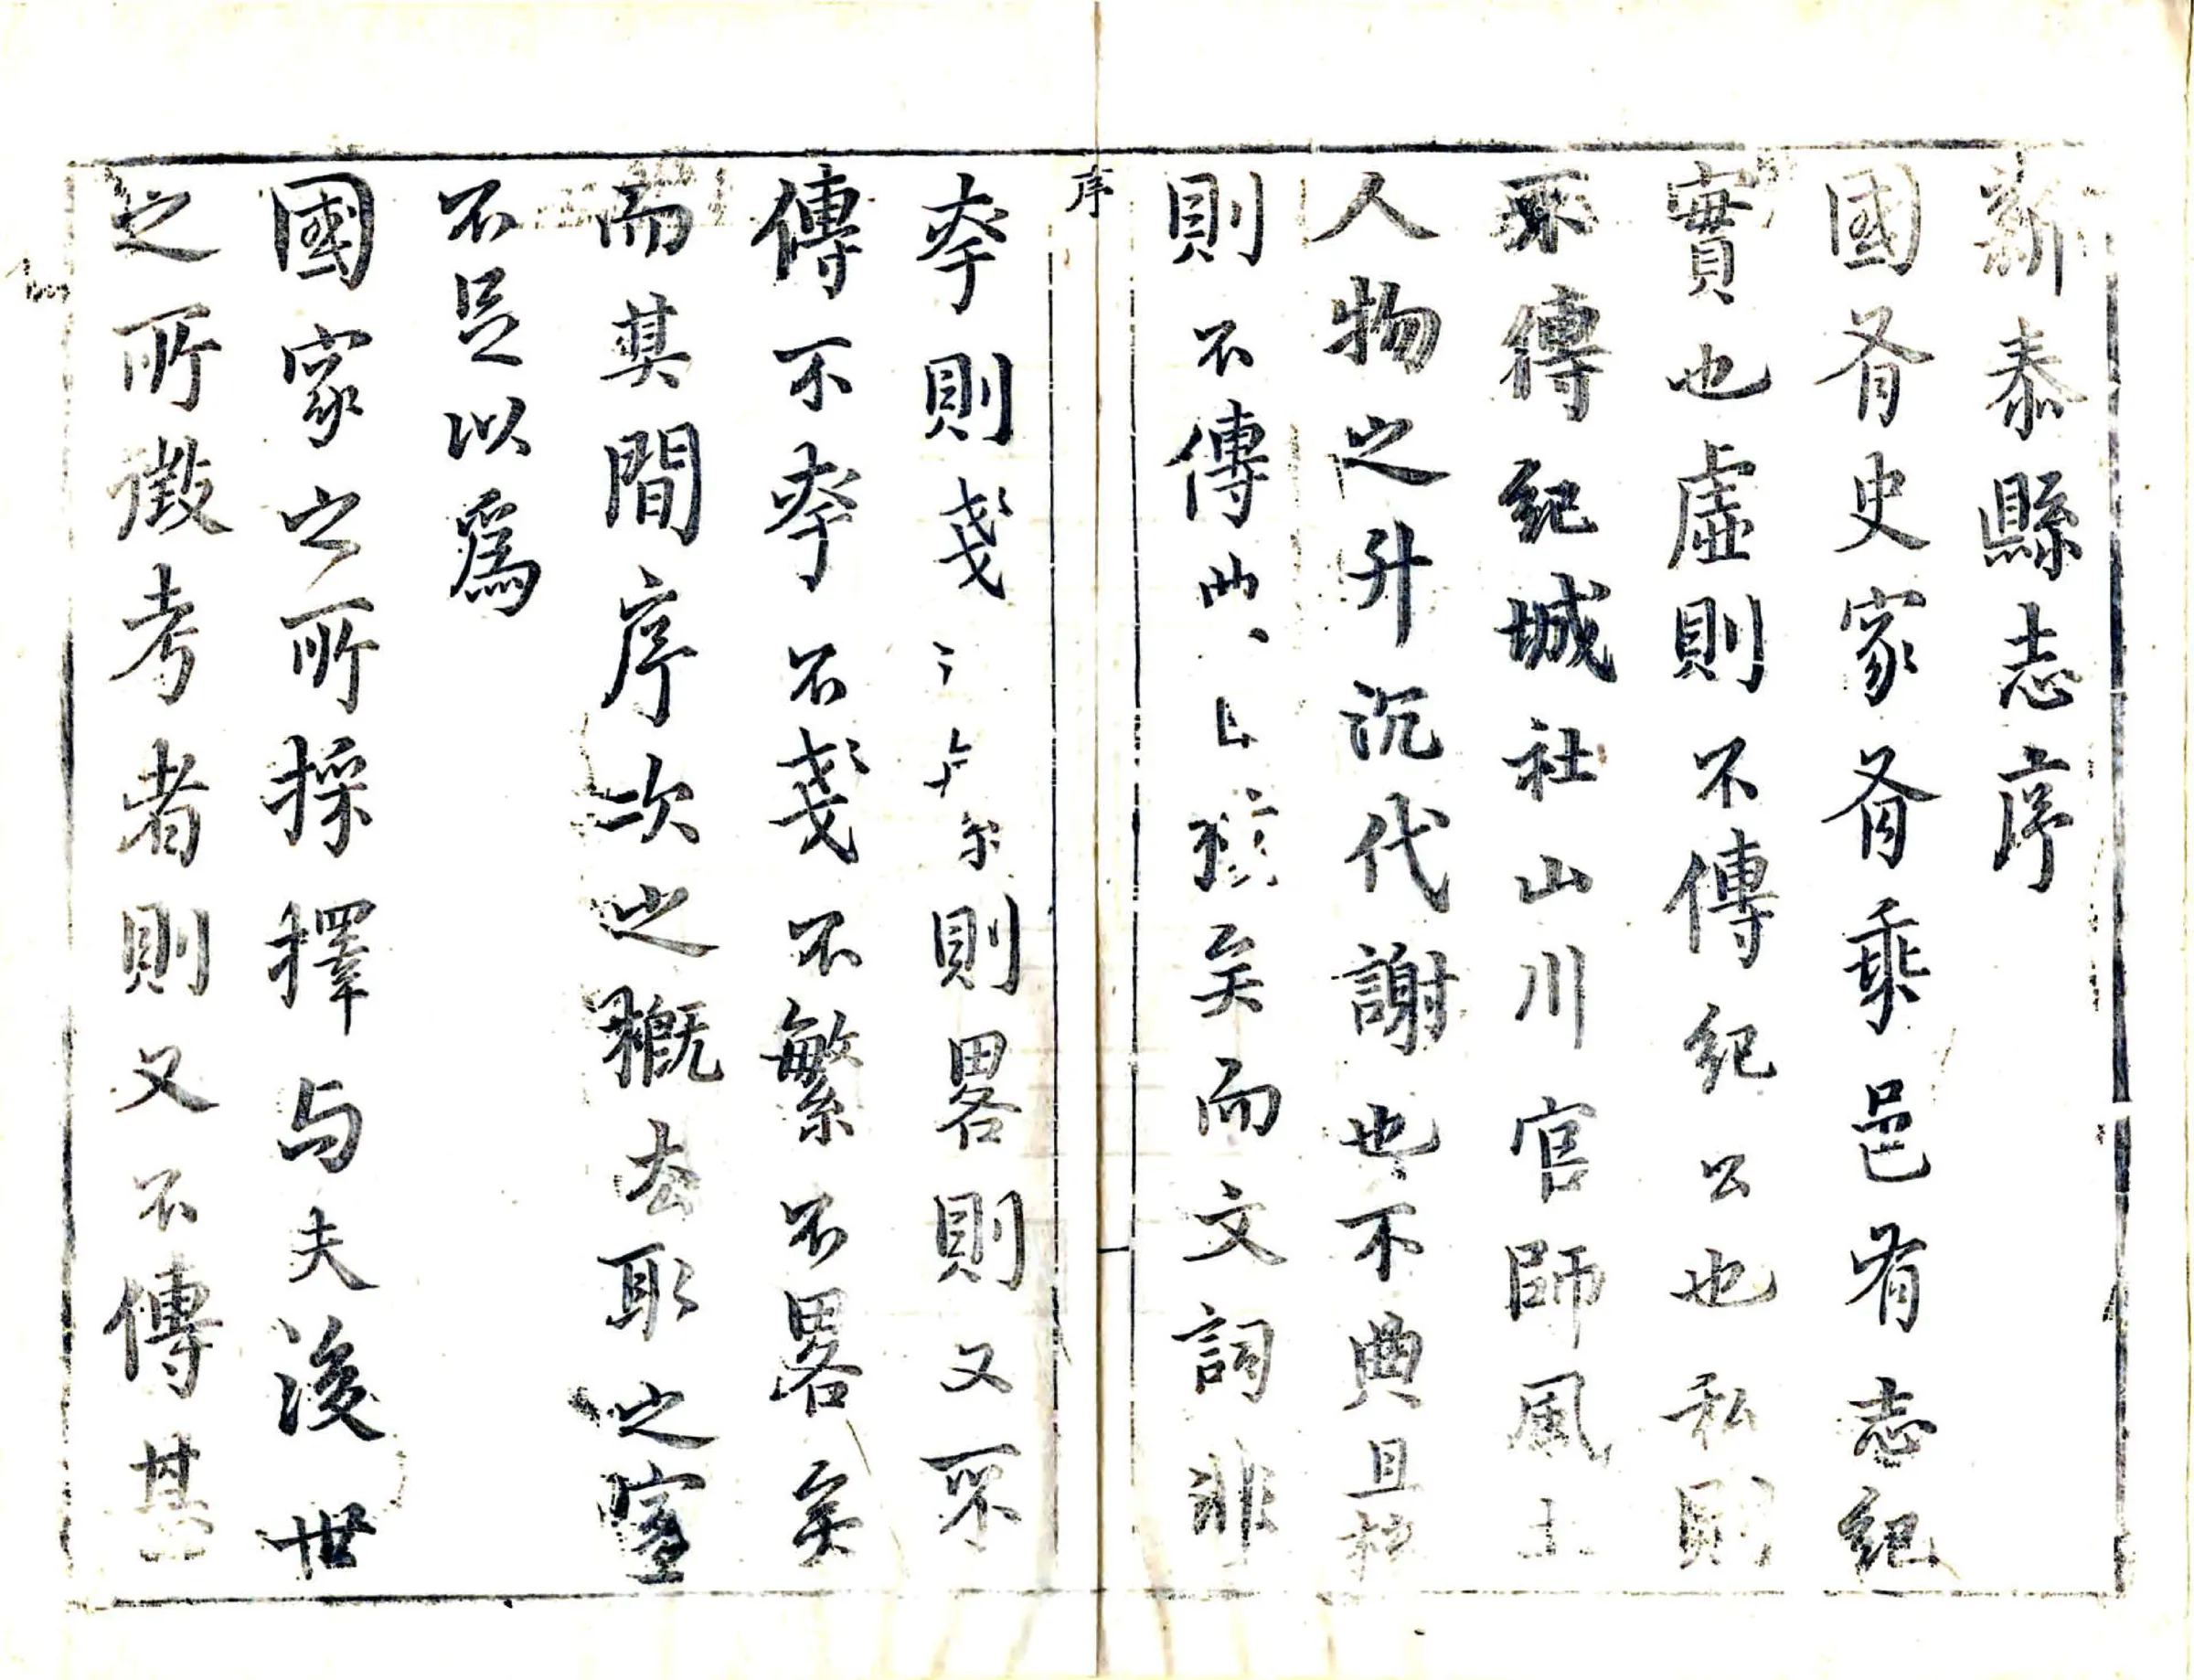 新泰縣志序
國有史家有乘邑有志紀
實也虛則不傳紀公也私則
不傳紀城社山川官師風土
人物之升沉代謝也不典且核
則不傳典矣而文詞非
序
率則戔則畧則又不
傳不率不戔不繁不畧矣
而其間序次之概去取之宜
不足以爲
國家之所採擇与夫後世
之所徵考者則又不傳甚